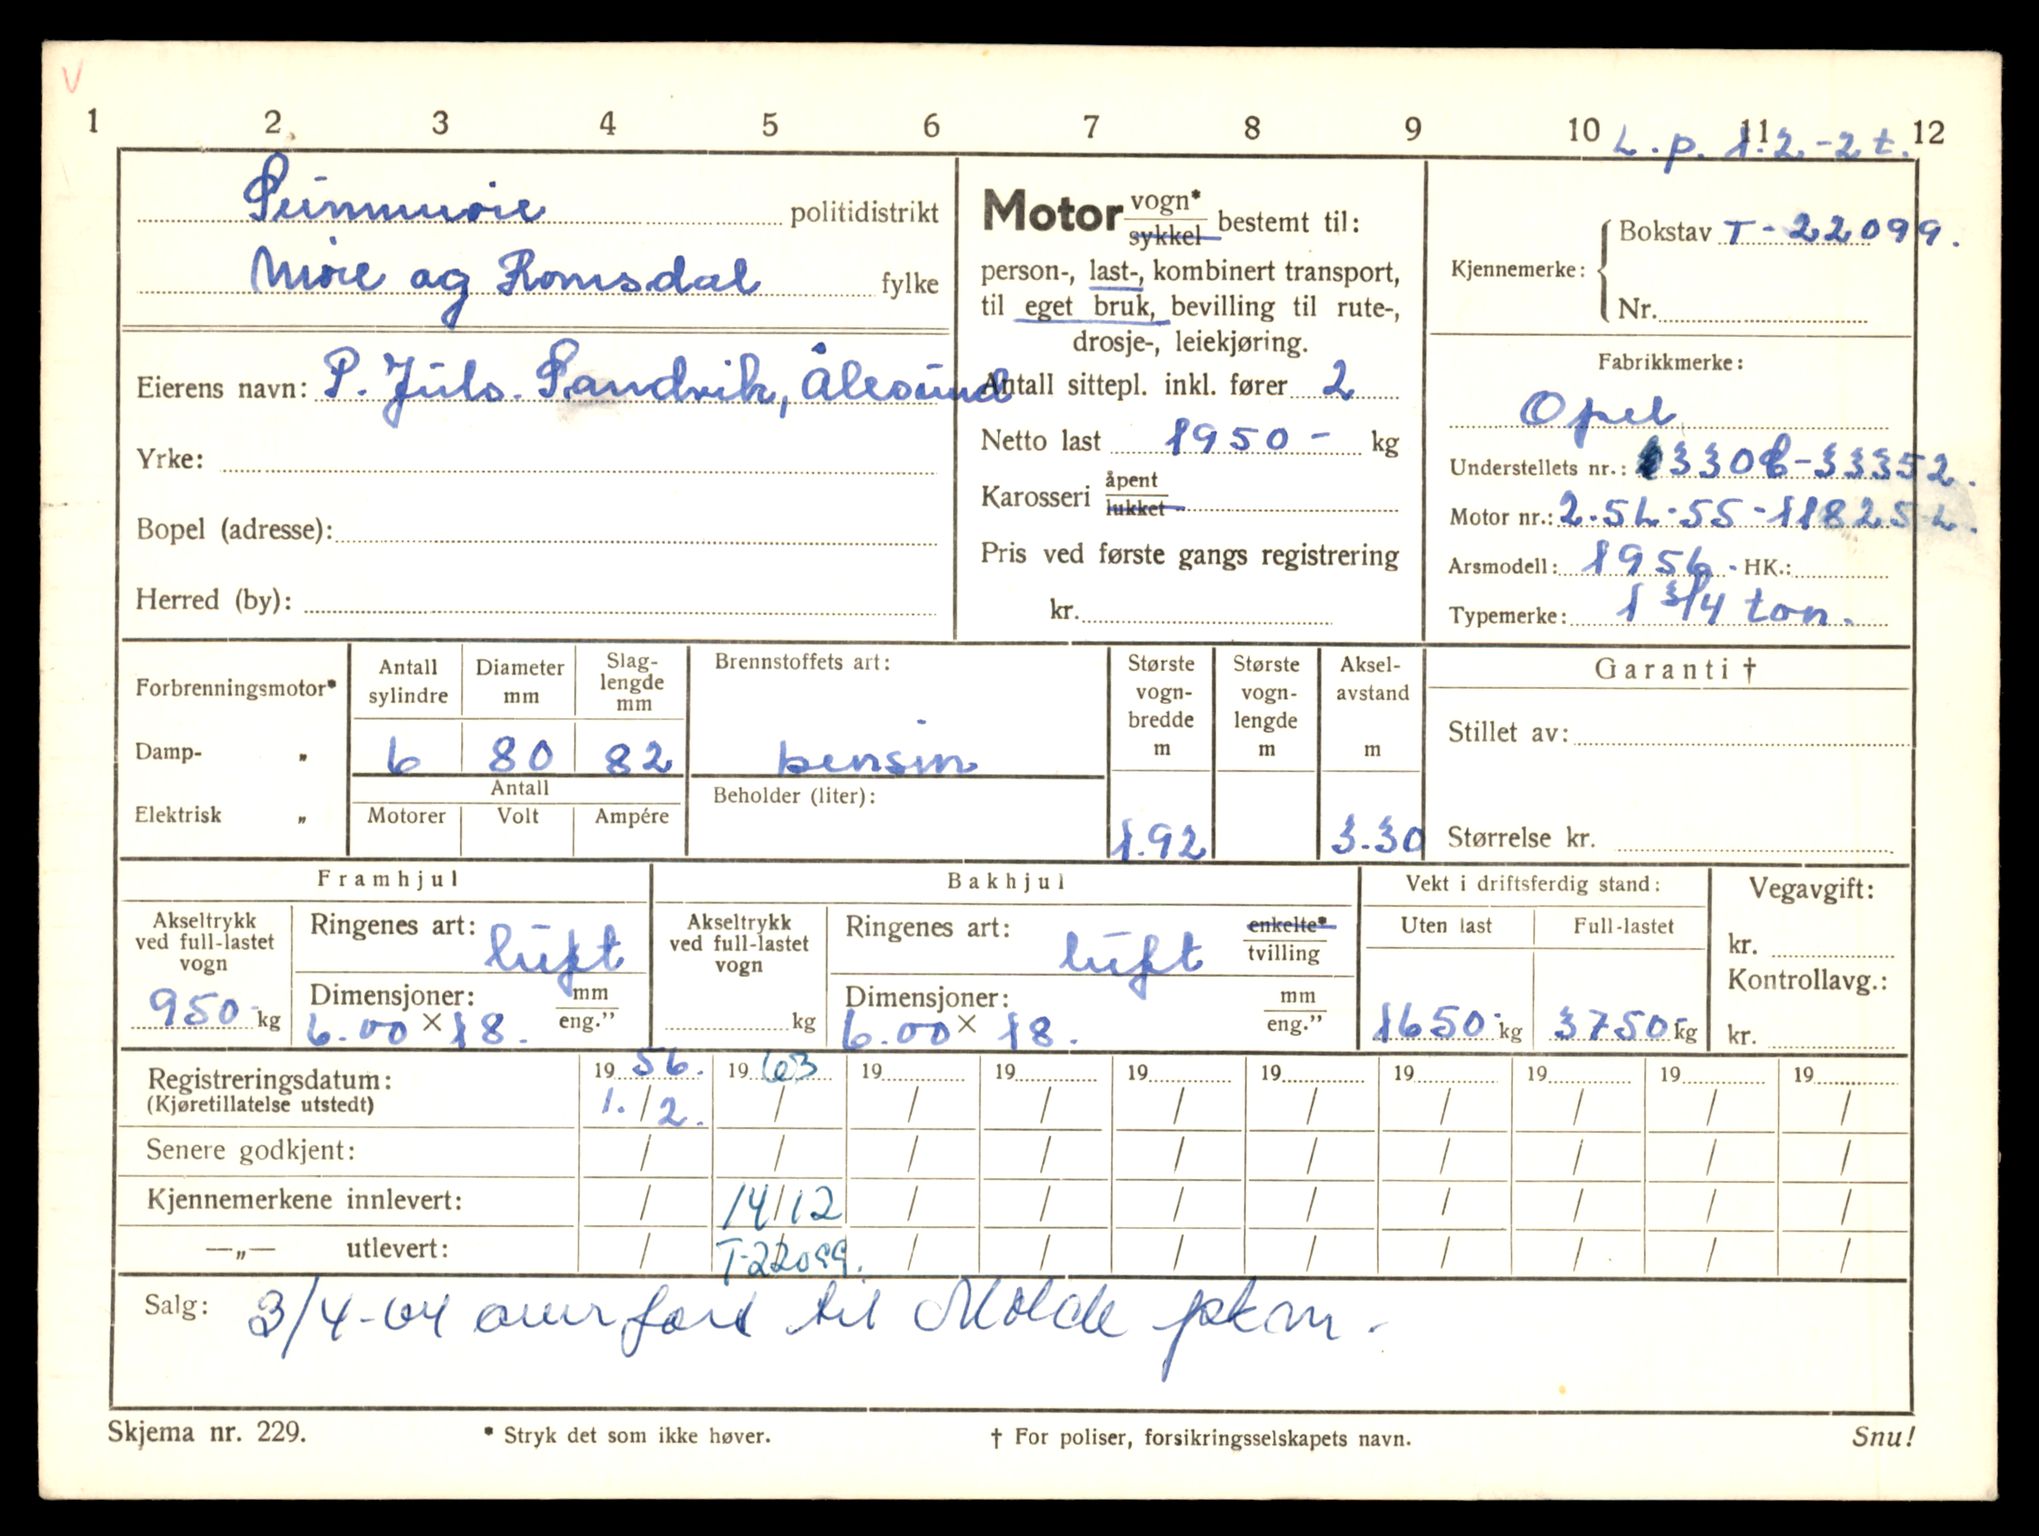 V
1 2 3 4 5 6 7 8 9 10 11 12
L.p. 1.2.-2 t.
Sunnmøre politidistrikt
Møre og Romsdal fylke
Eierens navn: P. Juls. Sandvik, Ålesund
Yrke:
Bopel (adresse):
Herred (by):
Motor vogn* sykkel bestemt til:
person-, last-, kombinert transport,
til eget bruk, bevilling til rute-,
drosje-, leiekjøring.
Antall sittepl. inkl. fører 2
Netto last 1950 - kg
Karosseri åpent lukket
Pris ved første gangs registrering
kr.
Kjennemerke: Bokstav T - 22099.
Nr.
Fabrikkmerke:
Opel
Understellets nr.: 330 -33352.
Motor nr.: 2.5L-55-118252.
Arsmodell: 1956. HK.:
Typemerke: 1 3/4 ton.
Forbrenningsmotor*
Damp- „
Elektrisk „
Antall sylindre
Diameter mm
Slag-lengde mm
6 80 82
Antall
Motorer Volt Ampére
Brennstoffets art:
bensin
Beholder (liter):
Største vogn-bredde m
1.92
Største vogn-lengde m
Aksel-avstand m
3.30
Garanti †
Stillet av:
Størrelse kr.
Framhjul
Akseltrykk ved full-lastet vogn
950 kg
Ringenes art: luft
Dimensjoner: mm eng."
6.00 × 18.
Bakhjul
Akseltrykk ved full-lastet vogn
kg
Ringenes art: luft enkelte* tvilling
Dimensjoner: mm eng."
6.00 × 18.
Vekt i driftsferdig stand:
Uten last Full-lastet
1650 kg 3750 kg
Vegavgift:
kr.
Kontrollavg.:
kr.
Registreringsdatum: 19 56. 19 63 19 19 19 19 19 19 19 19
(Kjøretillatelse utstedt) 1. / 2. / / / / / / / / /
Senere godkjent: / / / / / / / / / /
Kjennemerkene innlevert: / 14/12 / / / / / / / /
—„— utlevert: / T-22099. / / / / / / / /
Salg: 3/4-64 overført til Molde pkm.
Skjema nr. 229. * Stryk det som ikke høver. † For poliser, forsikringsselskapets navn. Snu!